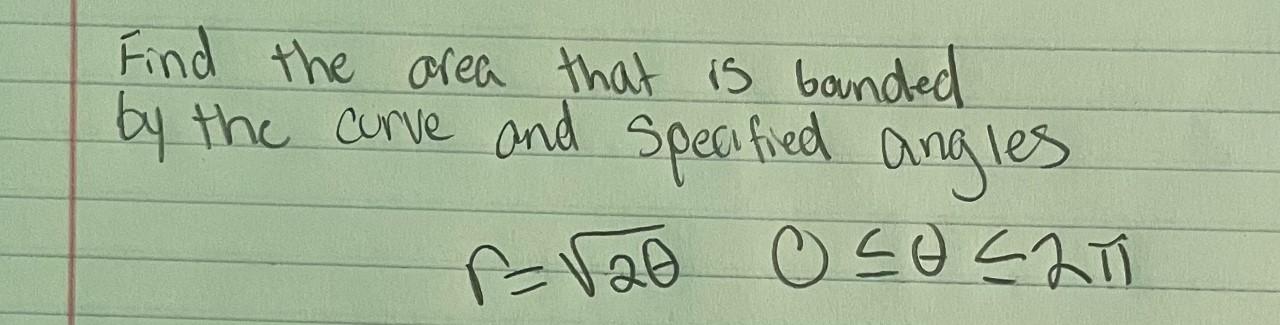 Find the area that is bounded
by the curve and specified angles
r=√2θ 0 ≤ θ ≤ 2π